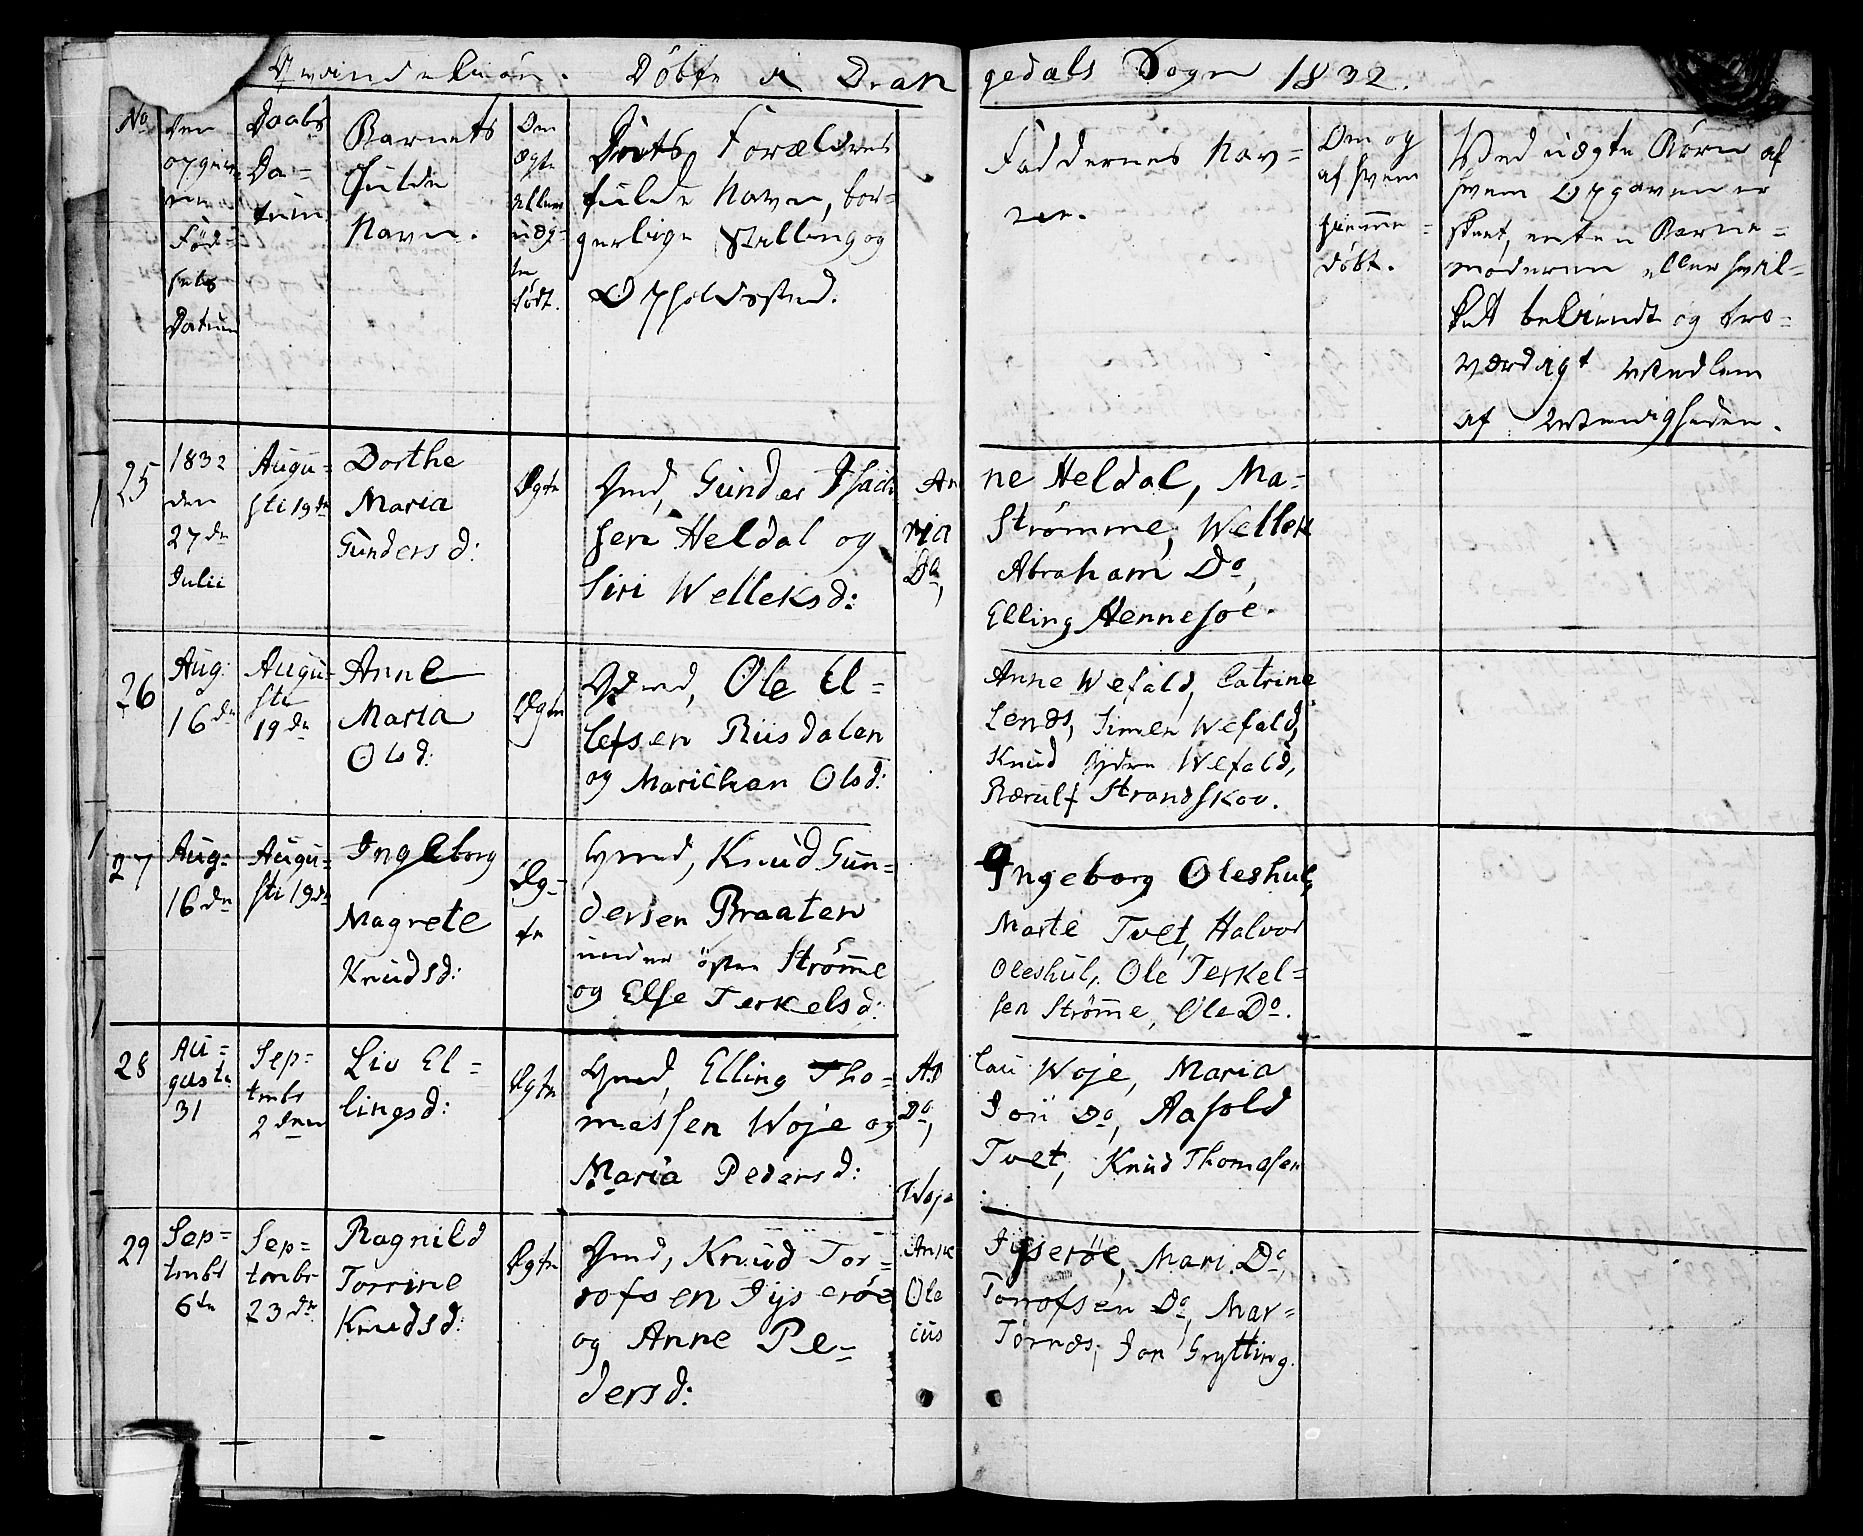 Qvindekiøn. Døbte i Dran gedals Sogn 1832.
No
Den
opgivne
Fød=
sels
Datum
Daabs
Da=
tum
Barnets
fulde
Navn.
Om
ægte
eller
uæg=
te
født.
Dets Forældres
fulde Navn, bor=
gerlige Stilling og
Opholdssted.
Faddernes Nav=
ne.
Om og
af hvem
hjemme=
døbt.
Ved uægte Børn af
hvem Opgaven er
skeet, enten Barne=
moderen eller hvil=
ket bekiendt og tro=
værdigt Medlem
af Menigheden.
25
1832
den
27 de
Julii
Augu=
sti 19 de
Dorthe
Maria
Gunders d:
Ægte
Gmd, Gunder Isach
sen Heldal og
Siri Welleks d:
An ne Heldal, Ma=
ria Strömme, Wellek
Do, Abraham Do,
Elling Hennesøe.
26
Aug:
16 de
Augu=
sti
19 de
Anne
Maria
Ols d:
Ægte
Gmd, Ole El=
lefsen Riisdalen
og Marichen Ols d:
Anne Wefald, Catrine
Lendes, Simen Wefald,
Knud Wefald,
Rærulf Strandskov.
27
Aug=
16 de
Augu=
sti 19 de
Ingeborg
Magrete
Knuds d:
Æg=
te
Gmd, Knud Gun=
dersen Braaten
under östre Strömme
og Else Terkels d:
Ingeborg Oleshul,
Marte Tvet, Halvor
Oleshul, Ole Terkel=
sen Strömme, Ole Do.
28
Au=
gusti
31
Sep=
tmbr
2 den
Liv El=
lings d:
Ægte
Gmd, Elling Tho=
massen Woje og
Maria Peders d:
As lau Woje, Maria
Do, Jon Do, Aasold
Tvet, Knud Thomasen
Woje
29
Sep=
tmbr
6 te
Sep=
tmbr
23 de
Ragnild
Torrine
Knuds d:
Ægte
Gmd, Knud Tor=
rofsen Jyserøe
og Anne Pe=
ders d:
Anne Jyserøe, Mari Do,
Ole Torrofsen Do, Mar=
cus Tornes, Jon Grytting.